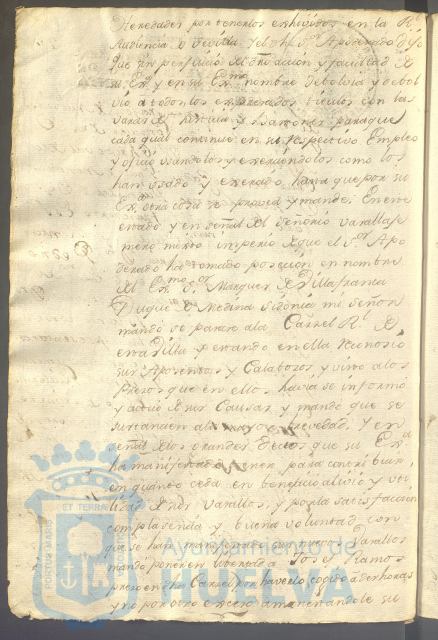 Heredades por tenerlos exhividos en la Rl.
Audiencia de Sevilla, y el dho Sr. Apoderado dijo
que sin perjuicio del dro accion y facultad de
su Exa. y en su Exmo. nombre debolvia y debol
vio a todos los expresados titulos con las
varas de Justicia y Bastones para que
cada qual continue en su respectivo Empleo
y oficio usandolos y exerciendolos como los
han usado y exercido hasta que por su
Exa. otra cosa se provea y mande: En este
estado y en señal del señorio vasallaje
mero mixto imperio de que el Sr. Apo
derado ha tomado posecion en nombre
del Exmo. Sor. Marques de Villafranca
Duque de Medina Sidonia mi señor
mandó se pasase a la Carcel Rl. de
esta Villa y estando en ella reconosió
sus Aposentos y Calabozos y vino a los
Presos que en ellos havia se informó
de sus Causas y mandó que se
sustancien a la mayor brevedad. Y en
señal de los grandes deseos que su Exa.
ha manifestado tener para contribuir
en quanto ceda en beneficio alivio y uti
lidad de sus vasallos, y por la satisfaccion
complasencia y buena voluntad con
que se han manifestado sus nuevos Vasallos
mandó poner en libertad a Josef Ramos
preso en dha Carcel por haverlo cogido a deshoras
y no por otro exceso amonestandole su
PORTUS MARIS
ET TERRAE
Ayuntamiento de
HUELVA